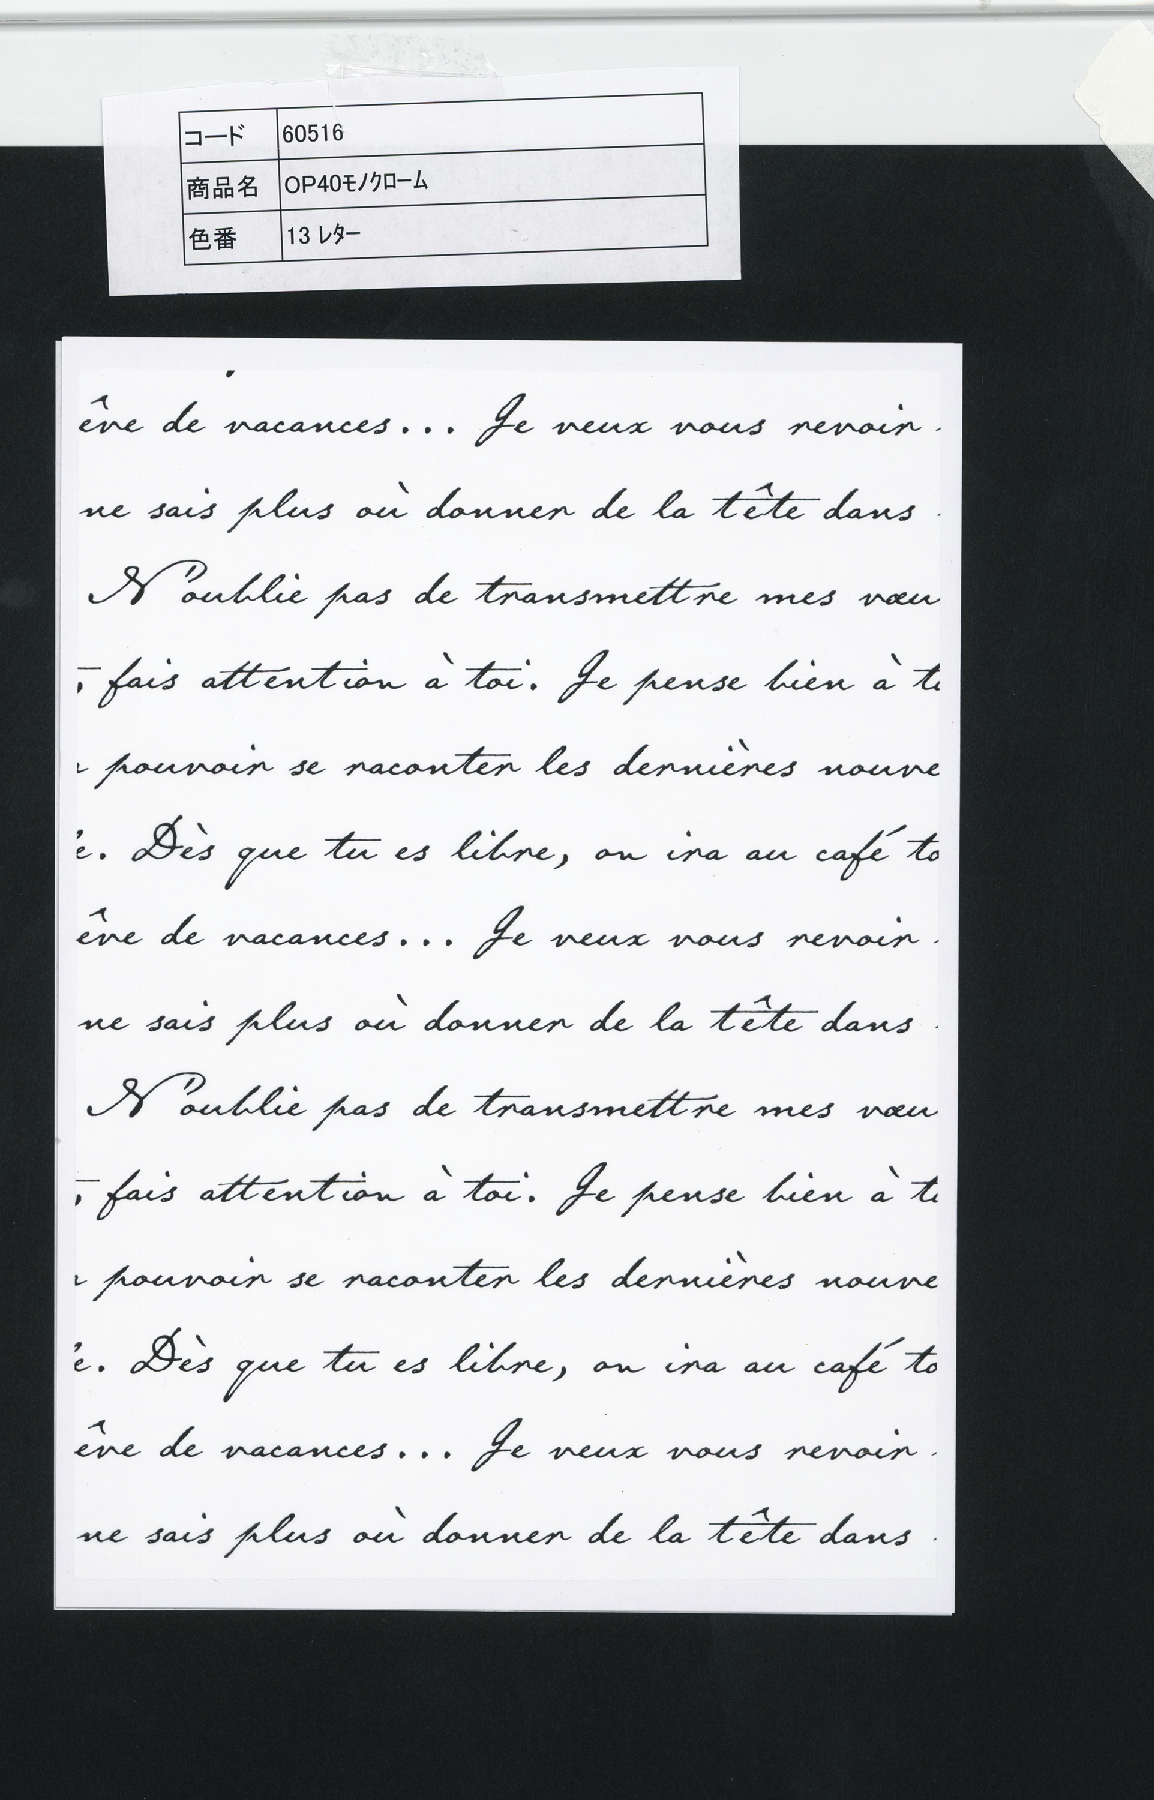 コード 60516
商品名 OP40ﾓﾉｸﾛｰﾑ
色番 13 ﾚﾀｰ
êve de vacances... Je veux vous revoir
ne sais plus où donner de la tête dans
N'oublie pas de transmettre mes vœu
fais attention à toi. Je pense bien à to
pouvoir se raconter les dernières nouve
e. Dès que tu es libre, on ira au café to
êve de vacances... Je veux vous revoir
ne sais plus où donner de la tête dans
N'oublie pas de transmettre mes vœu
fais attention à toi. Je pense bien à to
pouvoir se raconter les dernières nouve
e. Dès que tu es libre, on ira au café to
êve de vacances... Je veux vous revoir
ne sais plus où donner de la tête dans